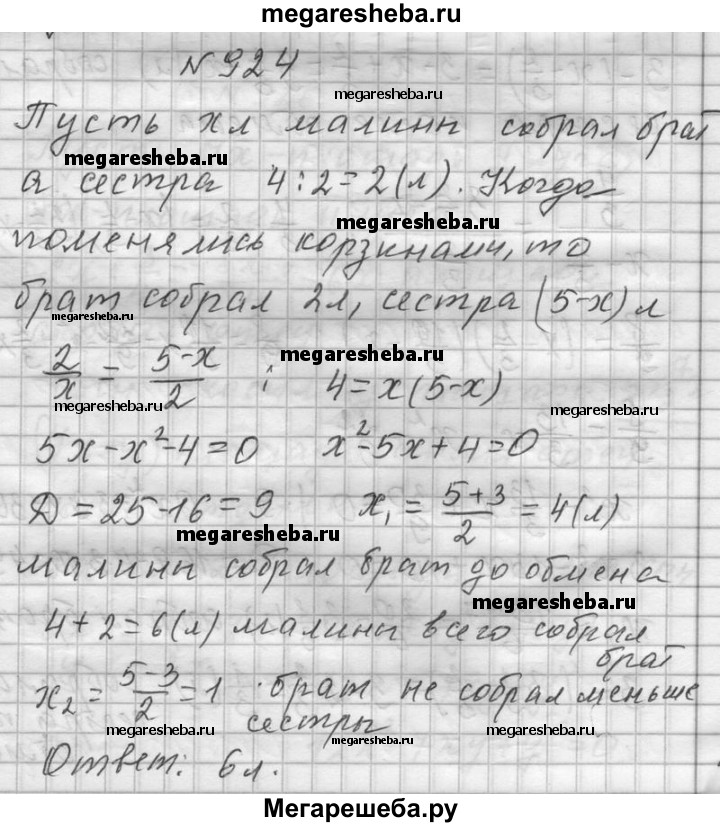 megaresheba.ru
№924
megaresheba.ru
Пусть х л малины собрал брат
megaresheba.ru
а сестра 4:2=2(л). Когда
megaresheba.ru
поменялись корзинами, то
брат собрал 2л, сестра (5-х) л
megaresheba.ru
2/х = 5-х/2 ; 4=х(5-х)
megaresheba.ru
megaresheba.ru megaresheba.ru
5х-х²-4=0 х²-5х+4=0
Д=25-16=9 х₁=5+3/2=4(л)
megaresheba.ru
малины собрал брат до обмена
megaresheba.ru
4+2=6(л) малины всего собрал
брат
х₂=5-3/2=1 · брат не собрал меньше
сестры
megaresheba.ru megaresheba.ru megaresheba.ru
Ответ: 6л.
Мегарешеба.ру